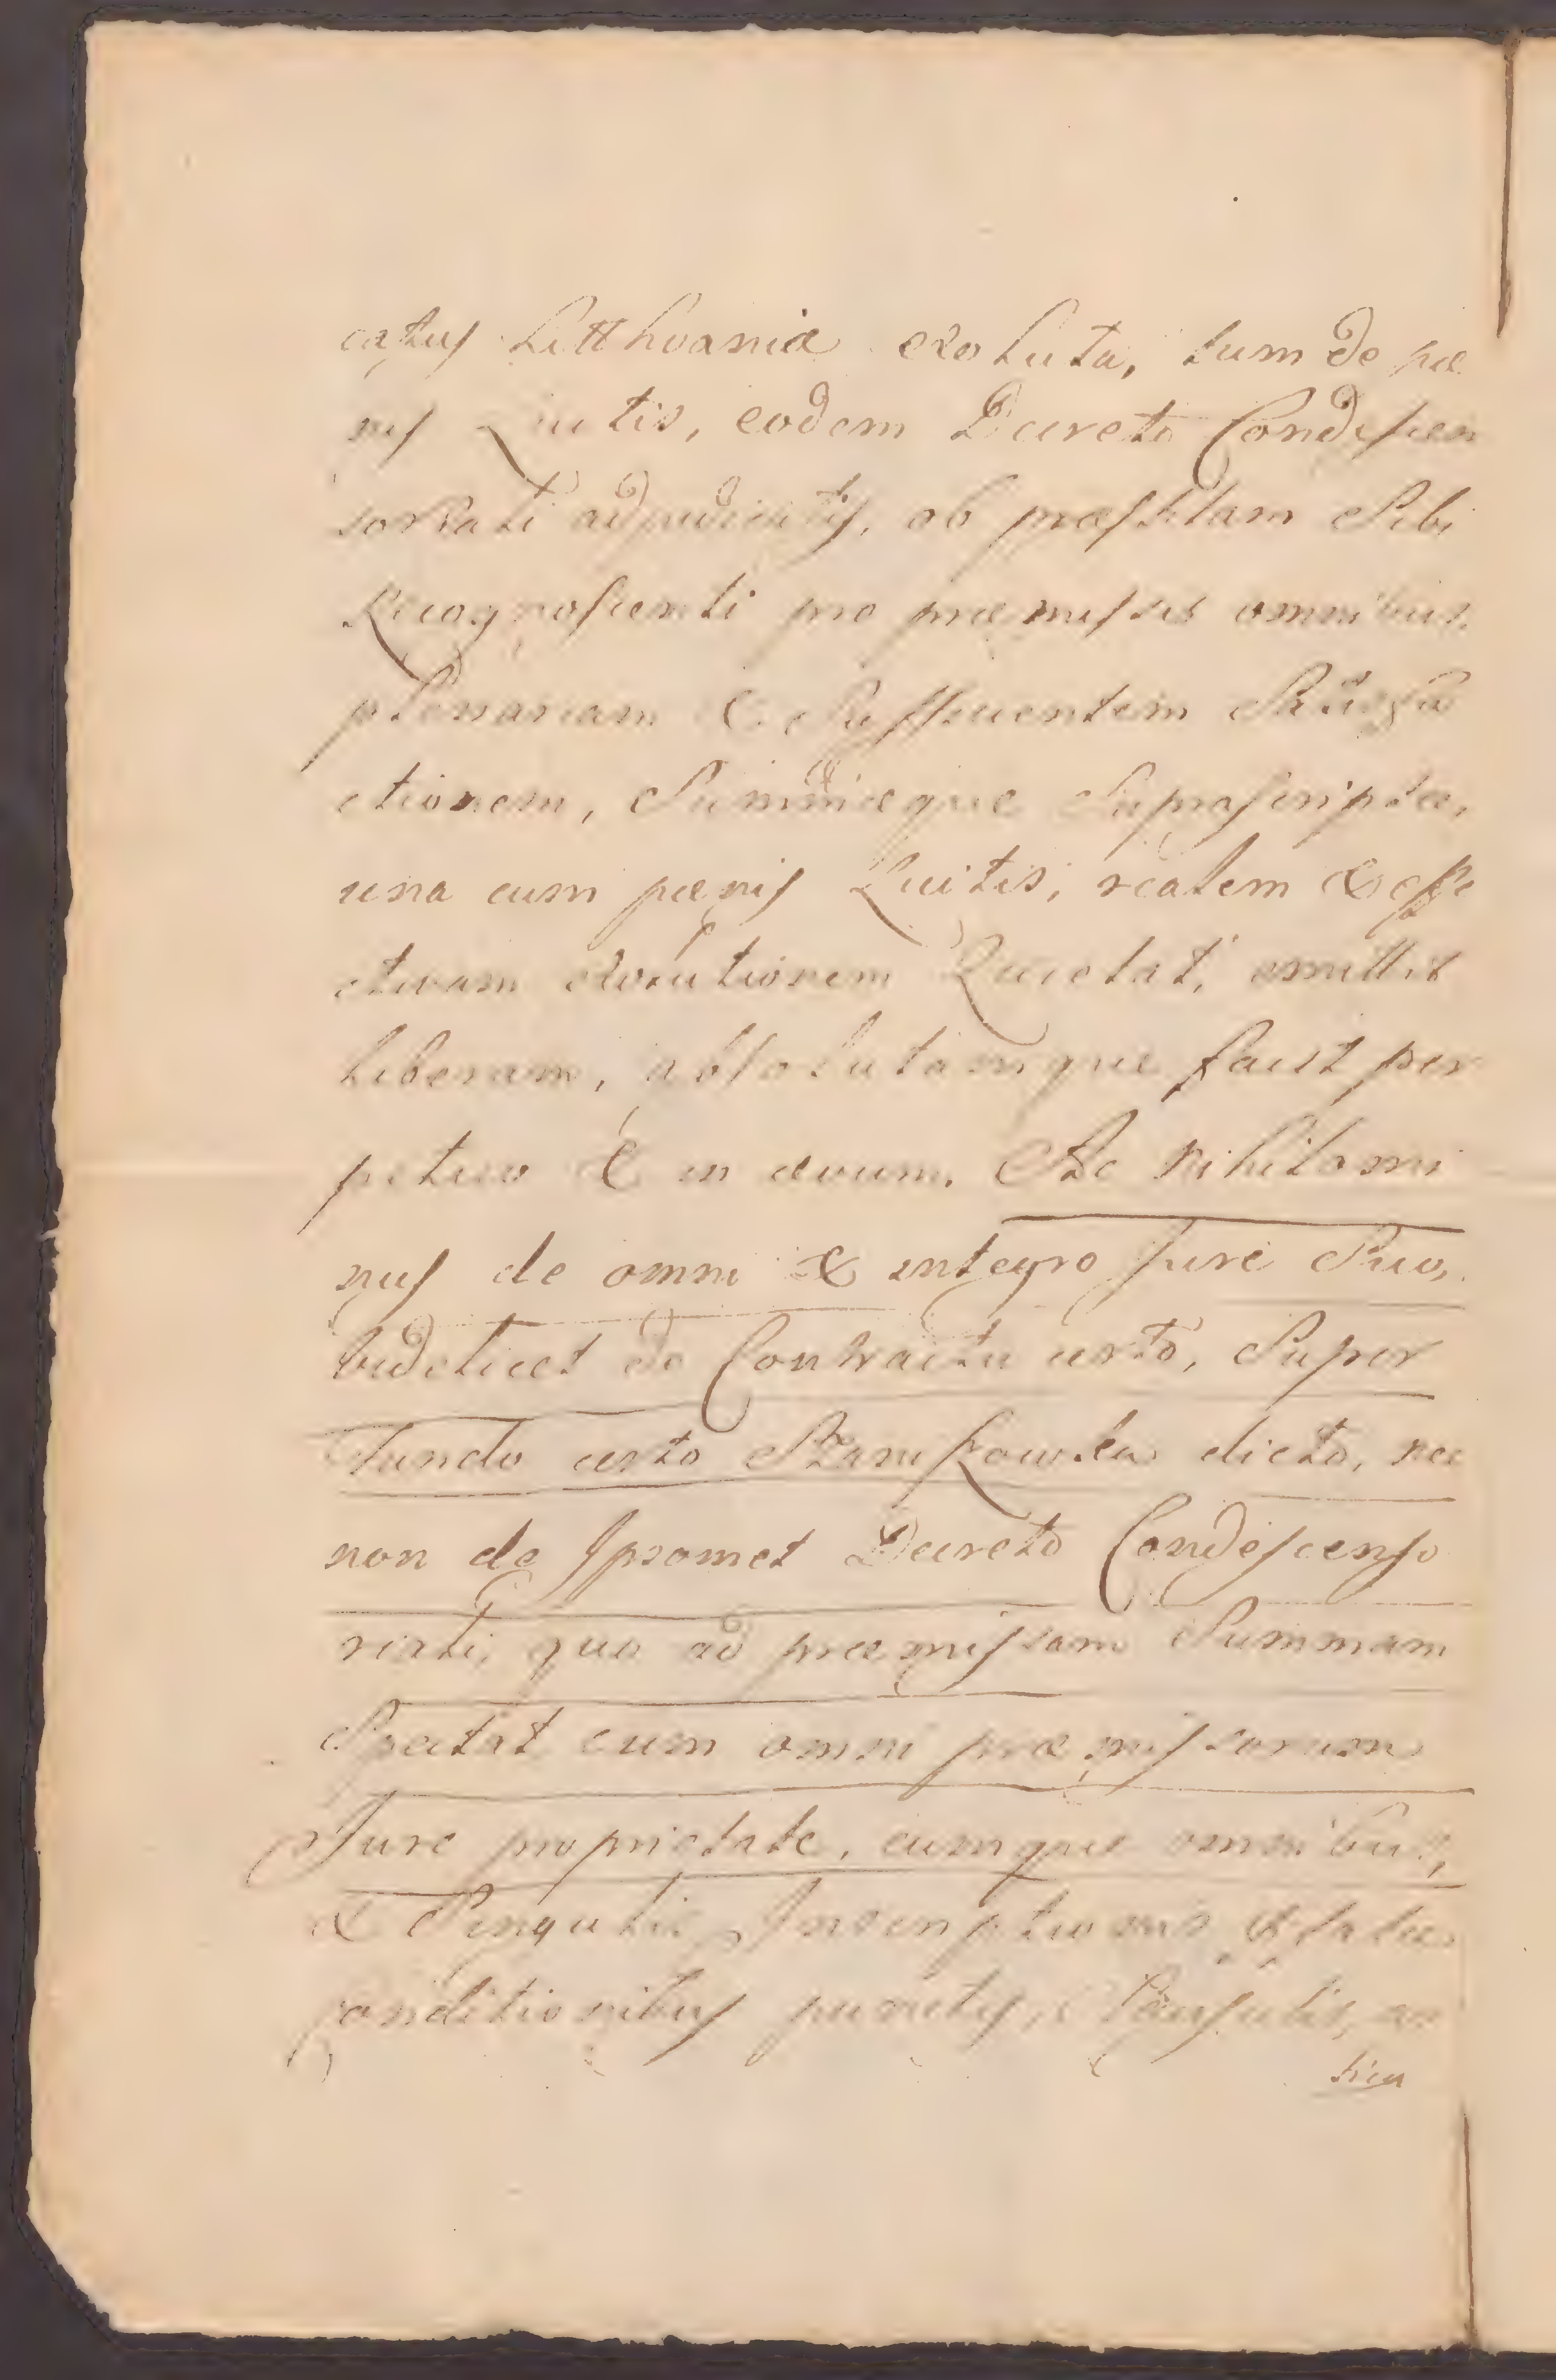 catus Litthvaniæ exoluta, tum de pæ
nis Luitis, eodem Decreto Condescen
soriali adjudicatis, ob præstitam Sibi
Recognoscenti pro præmissis omnibus
plenariam & Sufficientem Satisfa
ctionem, Summæque Suprascriptæ,
una cum pænis Luitis, realem & effe
ctivam exolutionem Quietat, omittit
liberam, absolutamque facit per
petuo & in ævum. Ac nihilomi
nus de omni & integro Jure Suo,
videlicet de Contractu certo, Super
Fundo certo dicto, nec
non de Ipsomet Decreto Condescenso
riali, quo ad præmissam Summam
Spectat cum omni præmissorum
Jure proprietate, cumque omnibus,
& Singulis Inscriptionis
conditionibus punctis, Clausulis, ar
ticu